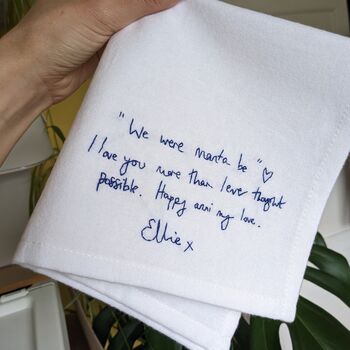 "We were manta be" ♡
I love you more than I ever thought
possible. Happy anni my love.
Ellie x